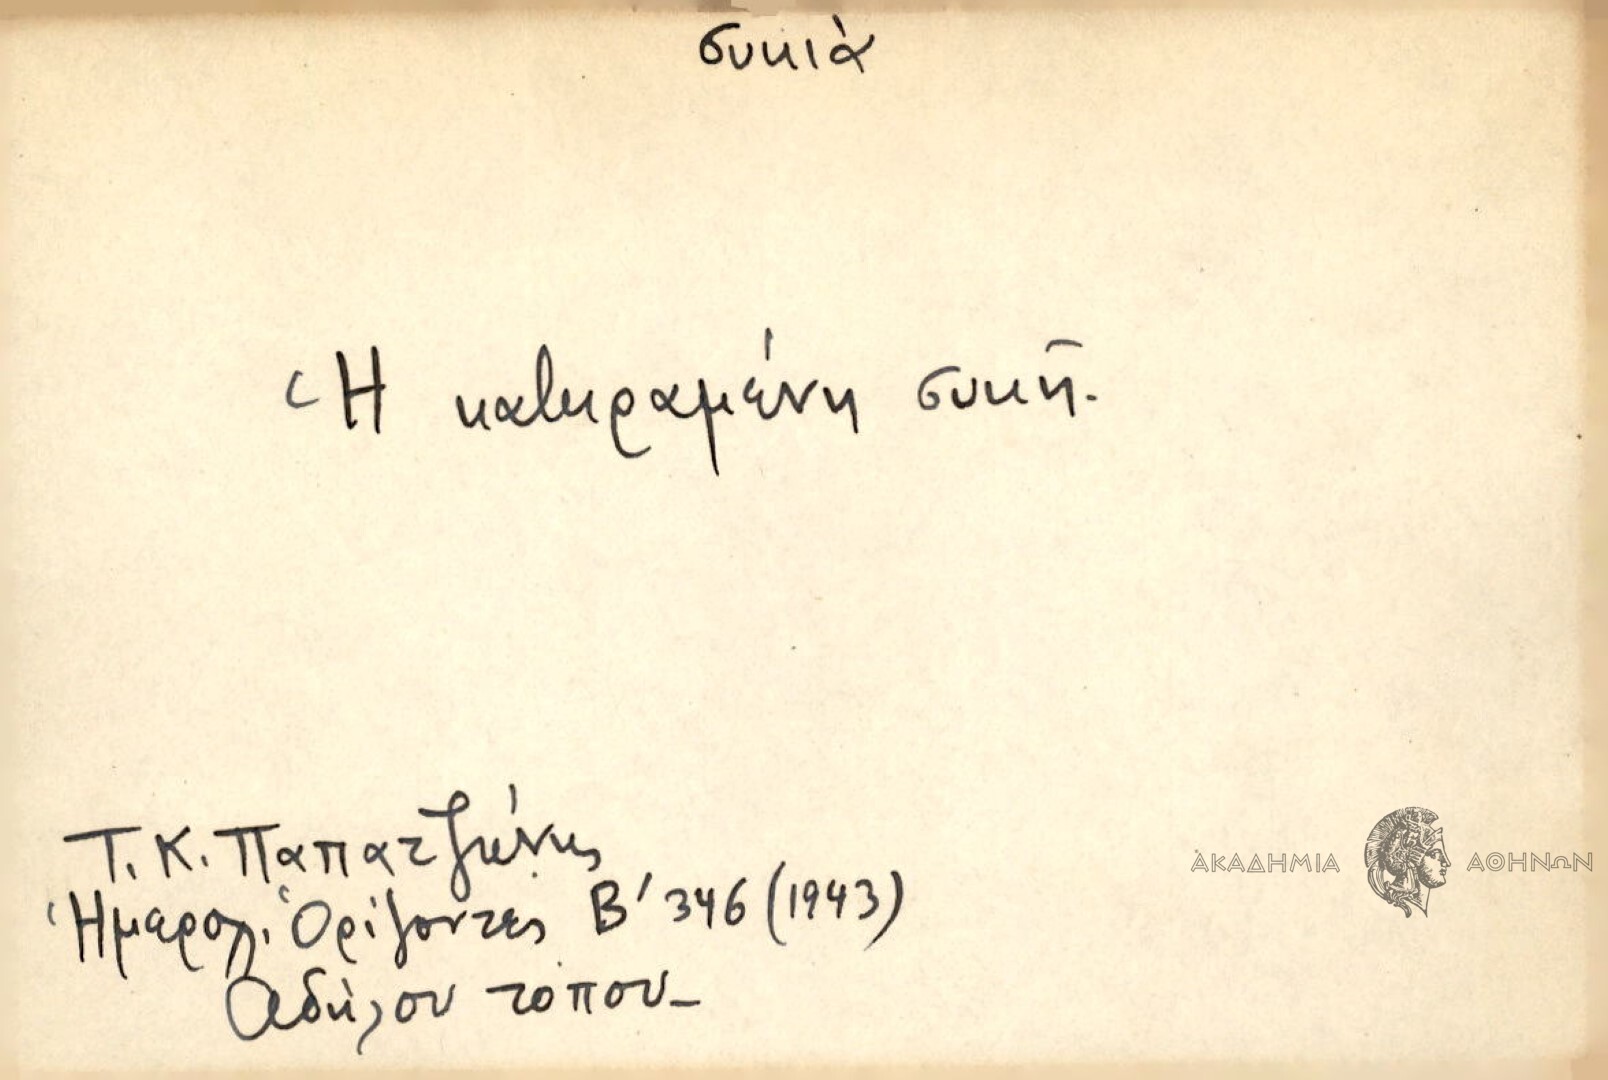 συκιὰ
Ἡ κατηραμένη συκῆ.
Τ. Κ. Παπατζώνης
Ἡμερολ. Ὁρίζοντες Β' 346 (1943)
Ἀδήλου τόπου_
ΑΚΑΔΗΜΙΑ ΑΘΗΝΩΝ